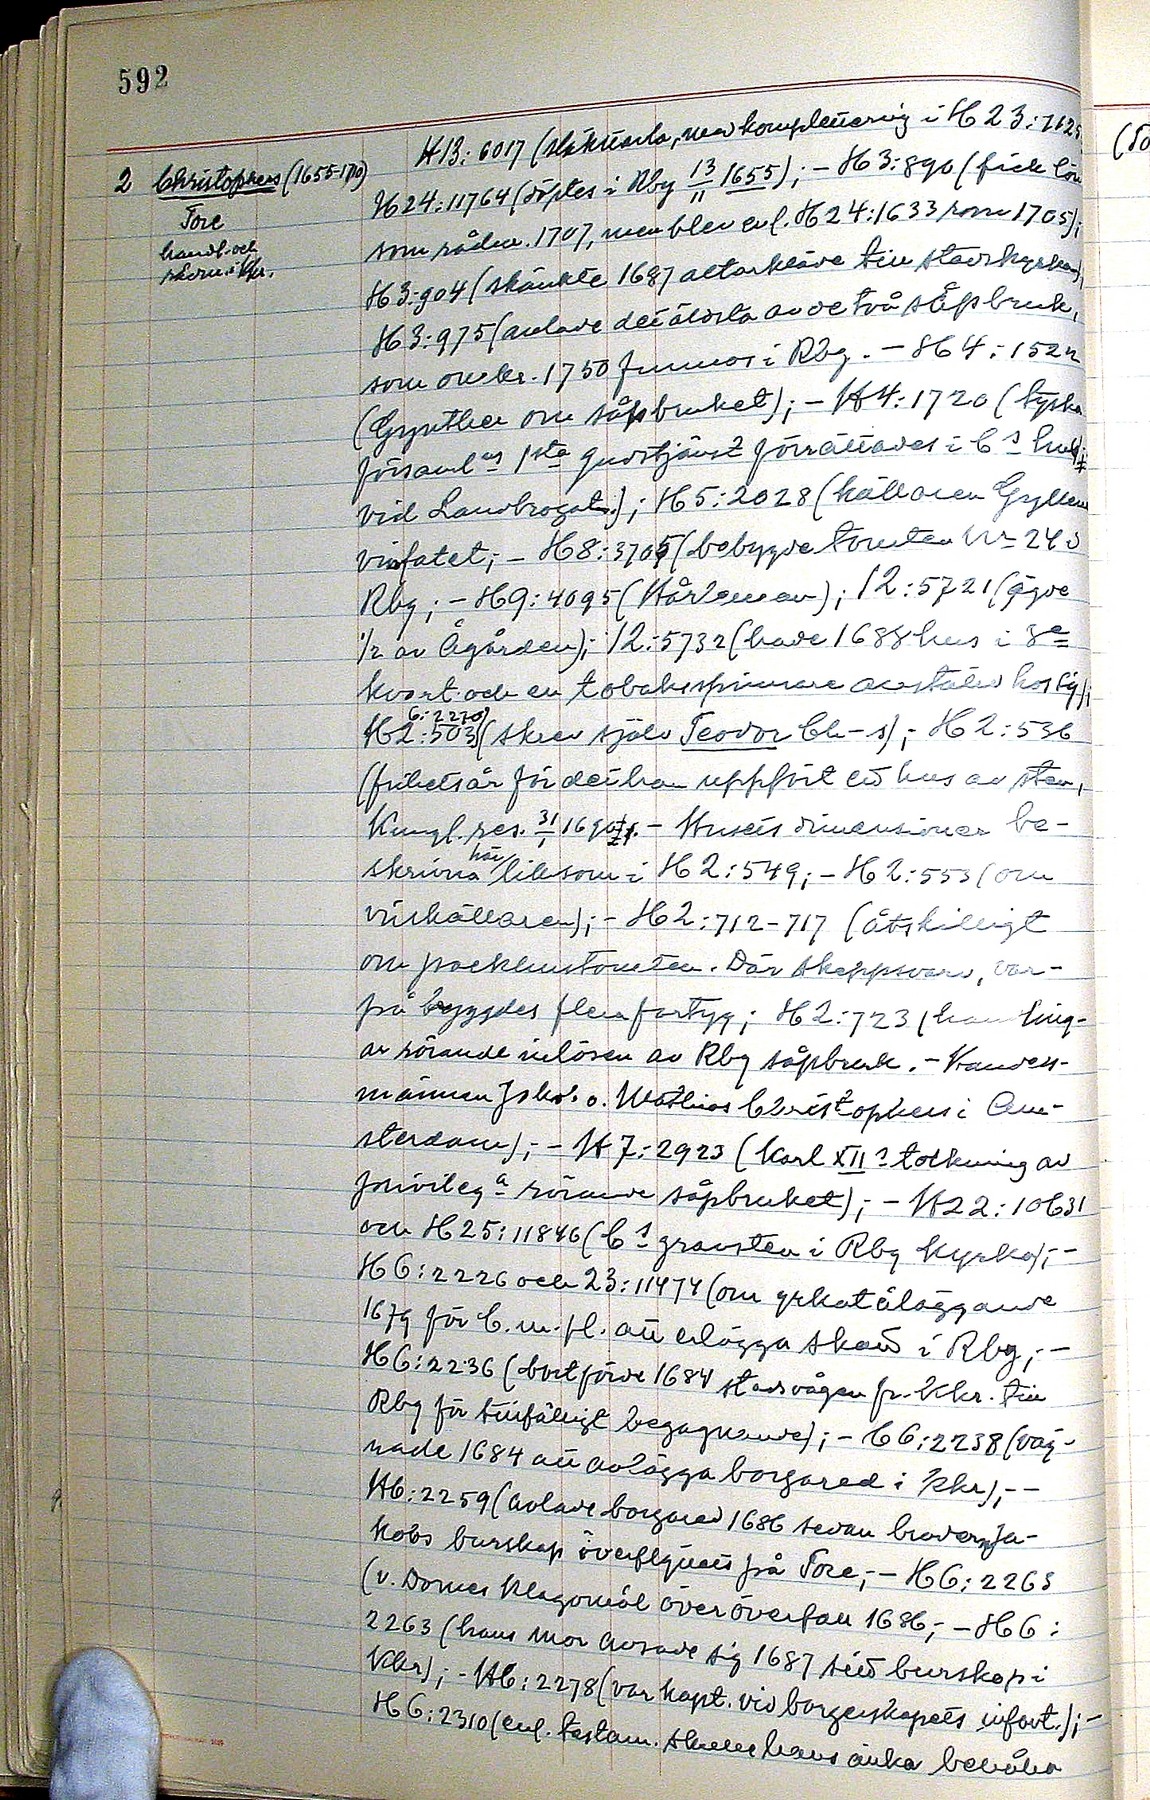 592
2 Christophers (1655-1710)
Tore
handl. och
rådm. i Kkr.
H13: 6017 (släkttavla, med komplettering i H23:
H24:11764 (döptes i Rbg 13/11 1655); - H3:890 (fick lön
som rådm. 1707, men blev enl. H24:1633 rådm 1705);
H3:904 (skänkte 1687 altarkläde till stadskyrkan);
H3:975 (anlade det äldsta av de två såpbruk,
som omkr. 1750 funnos i Rbg. - H4:1522
(Gynther om såpbruket); - H4:1720 (tyska
församl:ns 1sta gudstjänst förrättades i C:s hus
vid Landbrogat.); H5:2028 (källaren Gyllene
vinfatet; - H8:3705 (bebyggde tomten Nr 24 i
Rbg; - H9:4095 (Hårleman); 12:5721 (ägde
1/2 av Ågården); 12:5732 (hade 1688 hus i 8e
kvart. och en tobakspinnare anställd hos sig);
6:2270
H2:503 (skrev själv Teodor Ch-s); - H2:536
(frihetsår för det han uppfört ett hus av sten,
Kungl. res. 31/1 169. - Husets dimensioner be-
skrivna här liksom i H2:549; - H2:553 (om
vinkällaren); - H2:712-717 (åtskilligt
om packhustomten. Där skeppsvarv, var-
på byggdes flera fartyg; H2:723 (handling-
ar rörande inlösen av Rbg såpbruk. - Handels-
männen Jakob o. Mathias Christophers i Am-
sterdam); - H7:2923 (Karl XII:s tolkning av
privileg:a rörande såpbruket); - H22:10631
och H25:11846 (C:s gravsten i Rbg kyrka); -
H6:2226 och 23:11474 (om yrkat åläggande
1679 för C. m. fl. att erlägga skatt i Rbg; -
H6:2236 (bortförde 1684 stadsvågen fr. Kkr. till
Rbg för tillfälligt begagnande); - H6:2238 (väg-
rade 1684 att avlägga borgared i Kkr); - -
H6:2259 (avlade borgared 1686 sedan brodern Ja-
kobs burskap överflyttats på Tore; - H6:2263
(v. Domes klagomål över överfall 1686; - H6:
2263 (hans mor avsade sig 1687 sitt burskap i
Kkr); - H6:2278 (var kapt. vid borgerskapets infant.); -
H6:2310 (enl. testam. skulle hans änka behålla